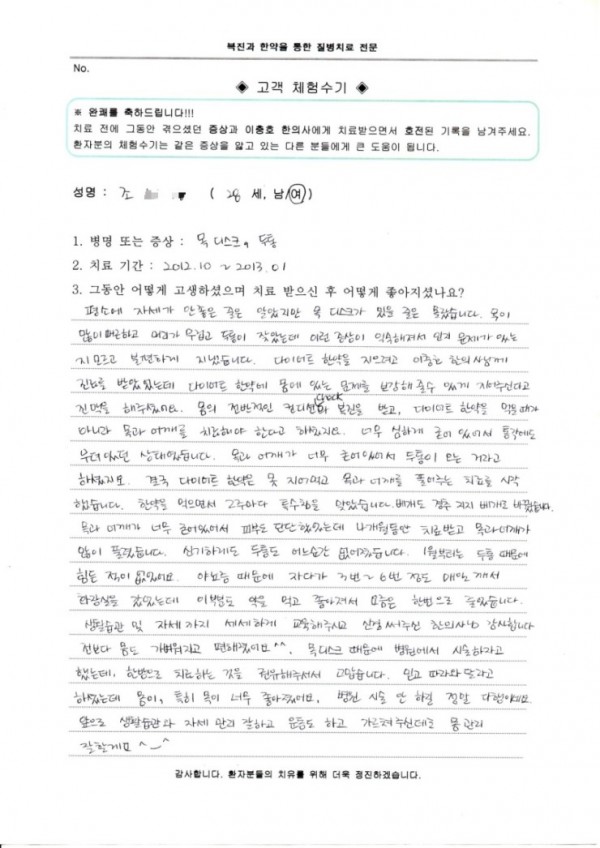 복진과 한약을 통한 질병치료 전문
No.
◈ 고객 체험수기 ◈
※ 완쾌를 축하드립니다!!!
치료 전에 그동안 겪으셨던 증상과 이충호 한의사에게 치료받으면서 호전된 기록을 남겨주세요.
환자분의 체험수기는 같은 증상을 앓고 있는 다른 분들에게 큰 도움이 됩니다.
성명 : 조 ( 28 세, 남/여)
1. 병명 또는 증상 : 목 디스크, 두통
2. 치료 기간 : 2012.10 ~ 2013.01
3. 그동안 어떻게 고생하셨으며 치료 받으신 후 어떻게 좋아지셨나요?
평소에 자세가 안좋은 줄은 알았지만 목 디스크가 있을 줄은 몰랐습니다. 목이
많이 뻐근하고 머리가 무겁고 두통이 잦았는데 이런 증상이 익숙해져서 몸에 문제가 있는
지 모르고 불편하게 지냈습니다. 다이어트 한약을 지으려고 이충호 한의사님께
진료를 받았었는데 다이어트 한약에 몸에 있는 문제를 보강해 줄수 있게 지어주신다고
진맥을 해주셨어요. 몸의 전반적인 컨디션 check과 복진을 받고, 다이어트 한약을 먹을때가
아니라 목과 어깨를 치료해야 한다고 하셨지요. 너무 심하게 굳어 있어서 통각에도
무뎌 있던 상태였습니다. 목과 어깨가 너무 굳어있어서 두통이 오는 거라고
하셨지요. 결국 다이어트 한약은 못 지어먹고 목과 어깨를 풀어주는 치료를 시작
했습니다. 한약을 먹으면서 2주마다 특수침을 맞았습니다. 베개도 경추 지지 베개로 바꿨습니다.
목과 어깨가 너무 굳어있어서 피부도 단단했었는데 4개월동안 치료받고 목과 어깨가
많이 풀렸습니다. 신기하게도 두통도 어느순간 없어졌습니다. 1월부터는 두통 때문에
힘든 적이 없었어요. 야뇨증 때문에 자다가 3번~6번 정도 매일 깨서
화장실을 갔었는데 이부분도 약을 먹고 좋아져서 요즘은 한번으로 줄었습니다.
생활습관 및 자세까지 세세하게 교육해주시고 신경써주신 한의사님 감사합니다
전보다 몸도 가벼워지고 편해졌어요^^. 목디스크 때문에 병원에서 시술하라고
했는데, 한방으로 치료하는 것을 권유해주셔서 고맙습니다. 믿고 따라와 달라고
하셨는데 몸이, 특히 목이 너무 좋아졌어요, 병원 시술 안 하길 정말 다행이에요.
앞으로 생활습관과 자세 관리 잘하고 운동도 하고 가르쳐주신대로 몸 관리
잘할게요 ^_^
감사합니다. 환자분들의 치유를 위해 더욱 정진하겠습니다.